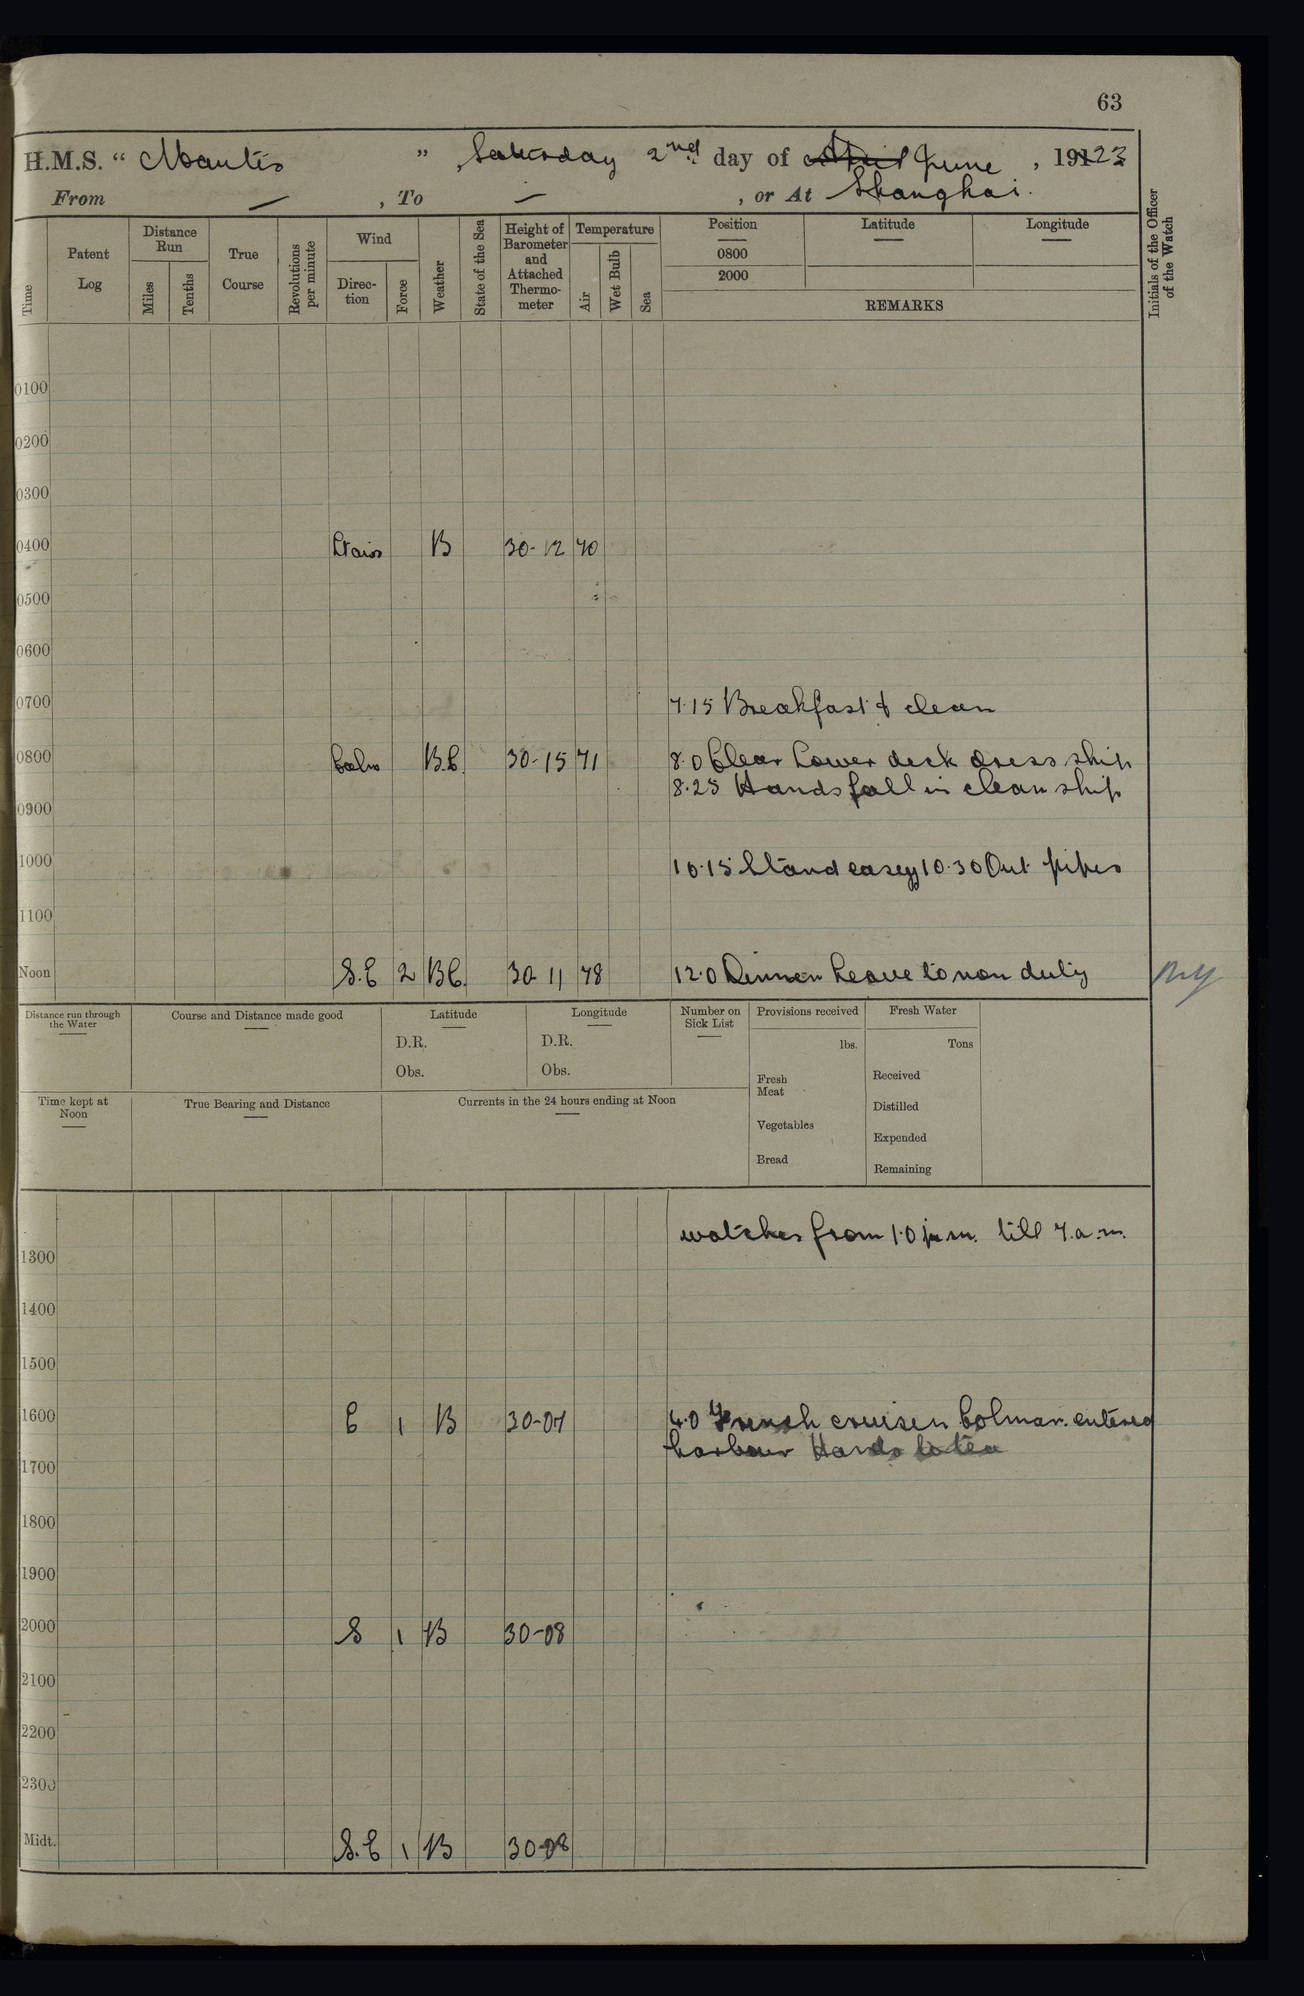 63
H.M.S. “ Mantis ” , Saturday 2nd day of April June , 19123
From — , To — , or At Shanghai.
Time
Patent Log
Distance Run
Miles
Tenths
True Course
Revolutions per minute
Wind
Direction
Force
Weather
State of the Sea
Height of Barometer and Attached Thermometer
Temperature
Air
Wet Bulb
Sea
Position
0800
2000
Latitude
Longitude
REMARKS
Initials of the Officer of the Watch
0100
0200
0300
0400 B 30-12 70
0500
0600
0700 7.15 Breakfast & clean
0800 Calm B.C. 30-15 71 8.0 Clear Lower deck dress ship
8.25 Hands fall in clean ship
0900
1000 10.15 Stand easy 10.30 Out pipes
1100
Noon S.E 2 BC. 30-11 78 12.0 Dinner Leave to non duty
Distance run through the Water
Course and Distance made good
Latitude
D.R.
Obs.
Longitude
D.R.
Obs.
Number on Sick List
Provisions received
lbs.
Fresh Meat
Vegetables
Bread
Fresh Water
Tons
Received
Distilled
Expended
Remaining
Time kept at Noon
True Bearing and Distance
Currents in the 24 hours ending at Noon
watches from 1.0 p.m. till 7.a.m.
1300
1400
1500
1600 E 1 B 30-07 4.0 French cruiser Colmar. entered
harbour Hands to tea
1700
1800
1900
2000 S 1 B 30-08
2100
2200
2300
Midt. S.E 1 B 30-08